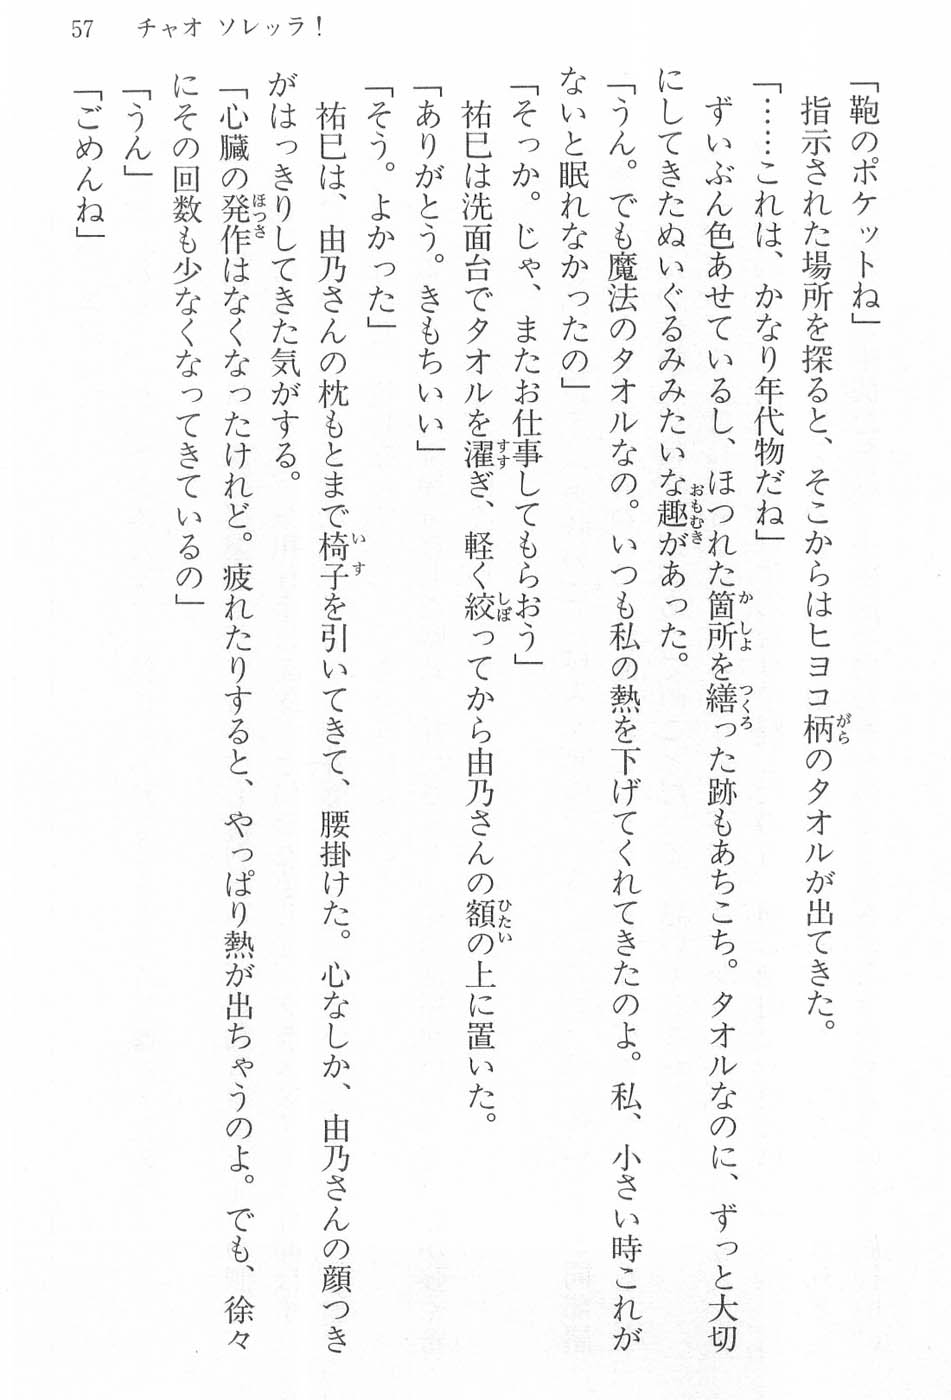 57　チャオ ソレッラ！
「鞄のポケットね」
　指示された場所を探ると、そこからはヒヨコ柄のタオルが出てきた。
「……これは、かなり年代物だね」
　ずいぶん色あせているし、ほつれた箇所を繕った跡もあちこち。タオルなのに、ずっと大切
にしてきたぬいぐるみみたいな趣があった。
「うん。でも魔法のタオルなの。いつも私の熱を下げてくれてきたのよ。私、小さい時これが
ないと眠れなかったの」
「そっか。じゃ、またお仕事してもらおう」
　祐巳は洗面台でタオルを濯ぎ、軽く絞ってから由乃さんの額の上に置いた。
「ありがとう。きもちいい」
「そう。よかった」
　祐巳は、由乃さんの枕もとまで椅子を引いてきて、腰掛けた。心なしか、由乃さんの顔つき
がはっきりしてきた気がする。
「心臓の発作はなくなったけれど。疲れたりすると、やっぱり熱が出ちゃうのよ。でも、徐々
にその回数も少なくなってきているの」
「うん」
「ごめんね」